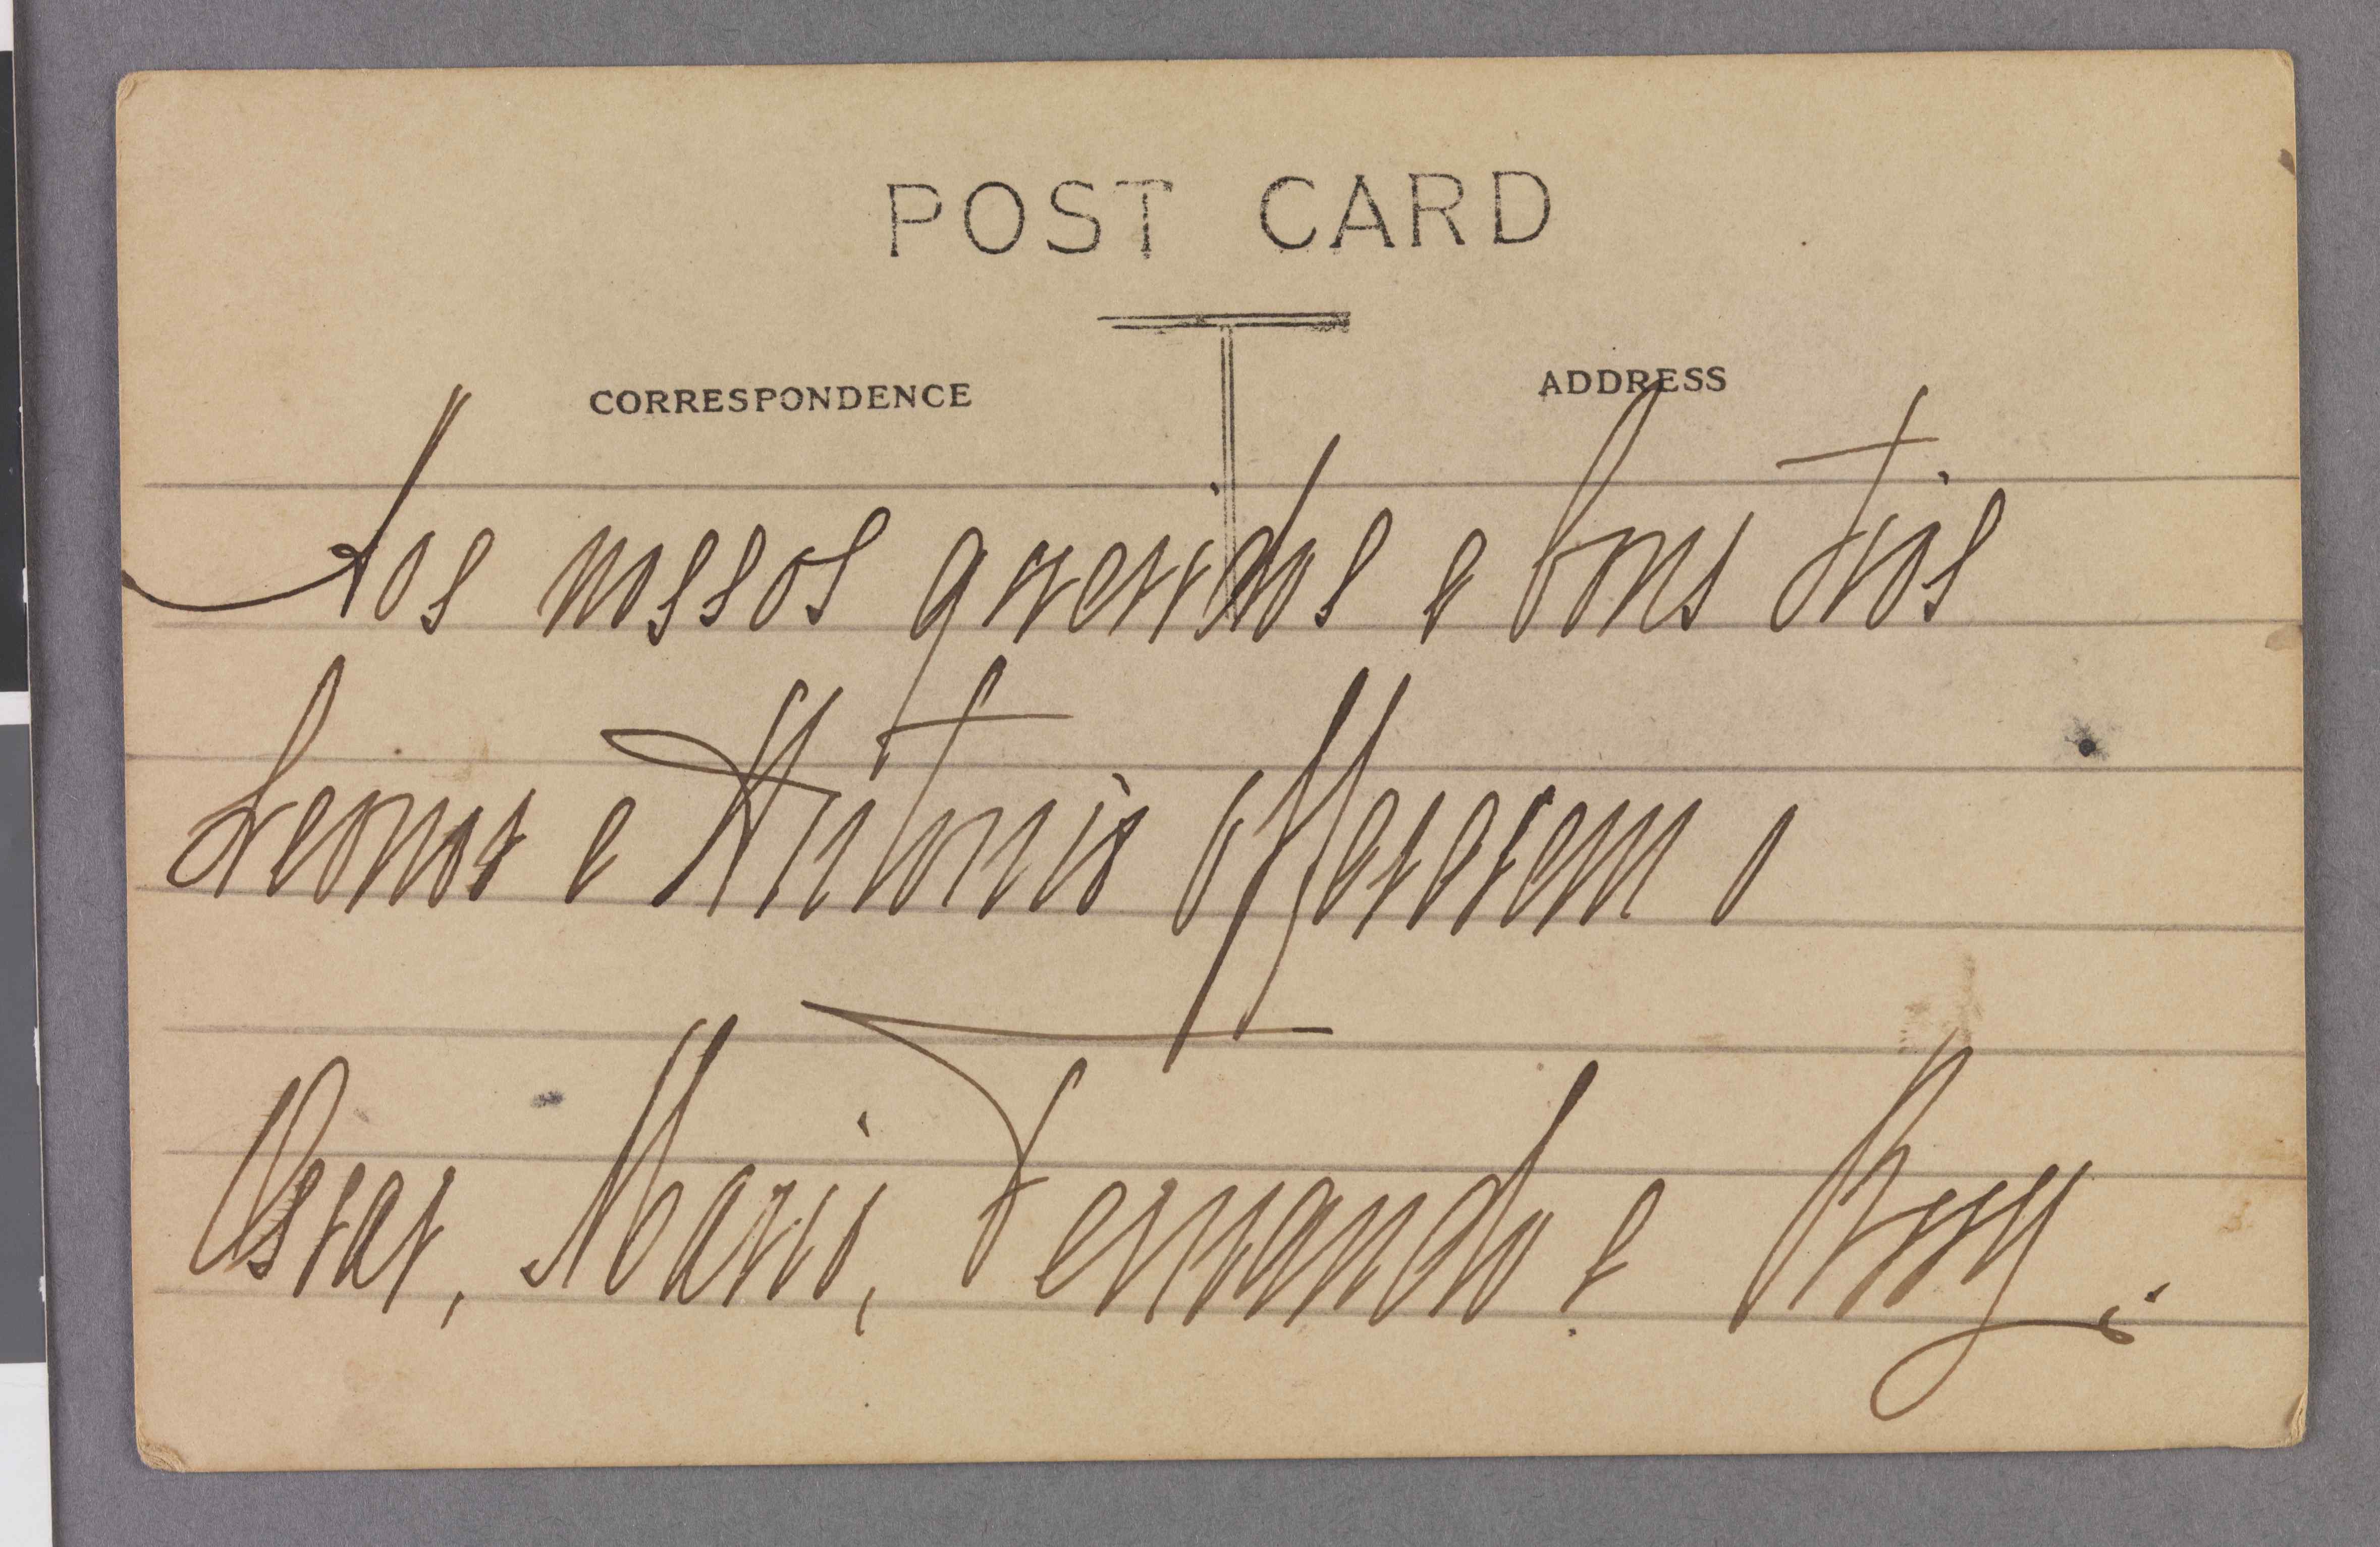 POST CARD
CORRESPONDENCE
ADDRESS
Aos nossos queridos e bons tios
Leonor e Antonio offerecem o
Oscar, Mario, Fernando e Ruy.